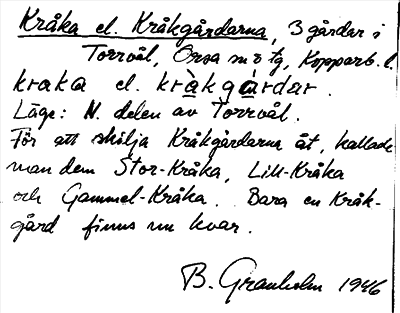 Kråka el. Kråkgårdarna, 3 gårdar i
Torrvål, Orsa sn o tg, Kopparb. l.
kraka el. kràkgàrdar.
Läge: N. delen av Torrvål.
För att skilja Kråkgårdarna åt, kallade
man dem Stor-Kråka, Lill-Kråka
och Gammel-Kråka. Bara en Kråk-
gård finns nu kvar.
B. Granholm 1946